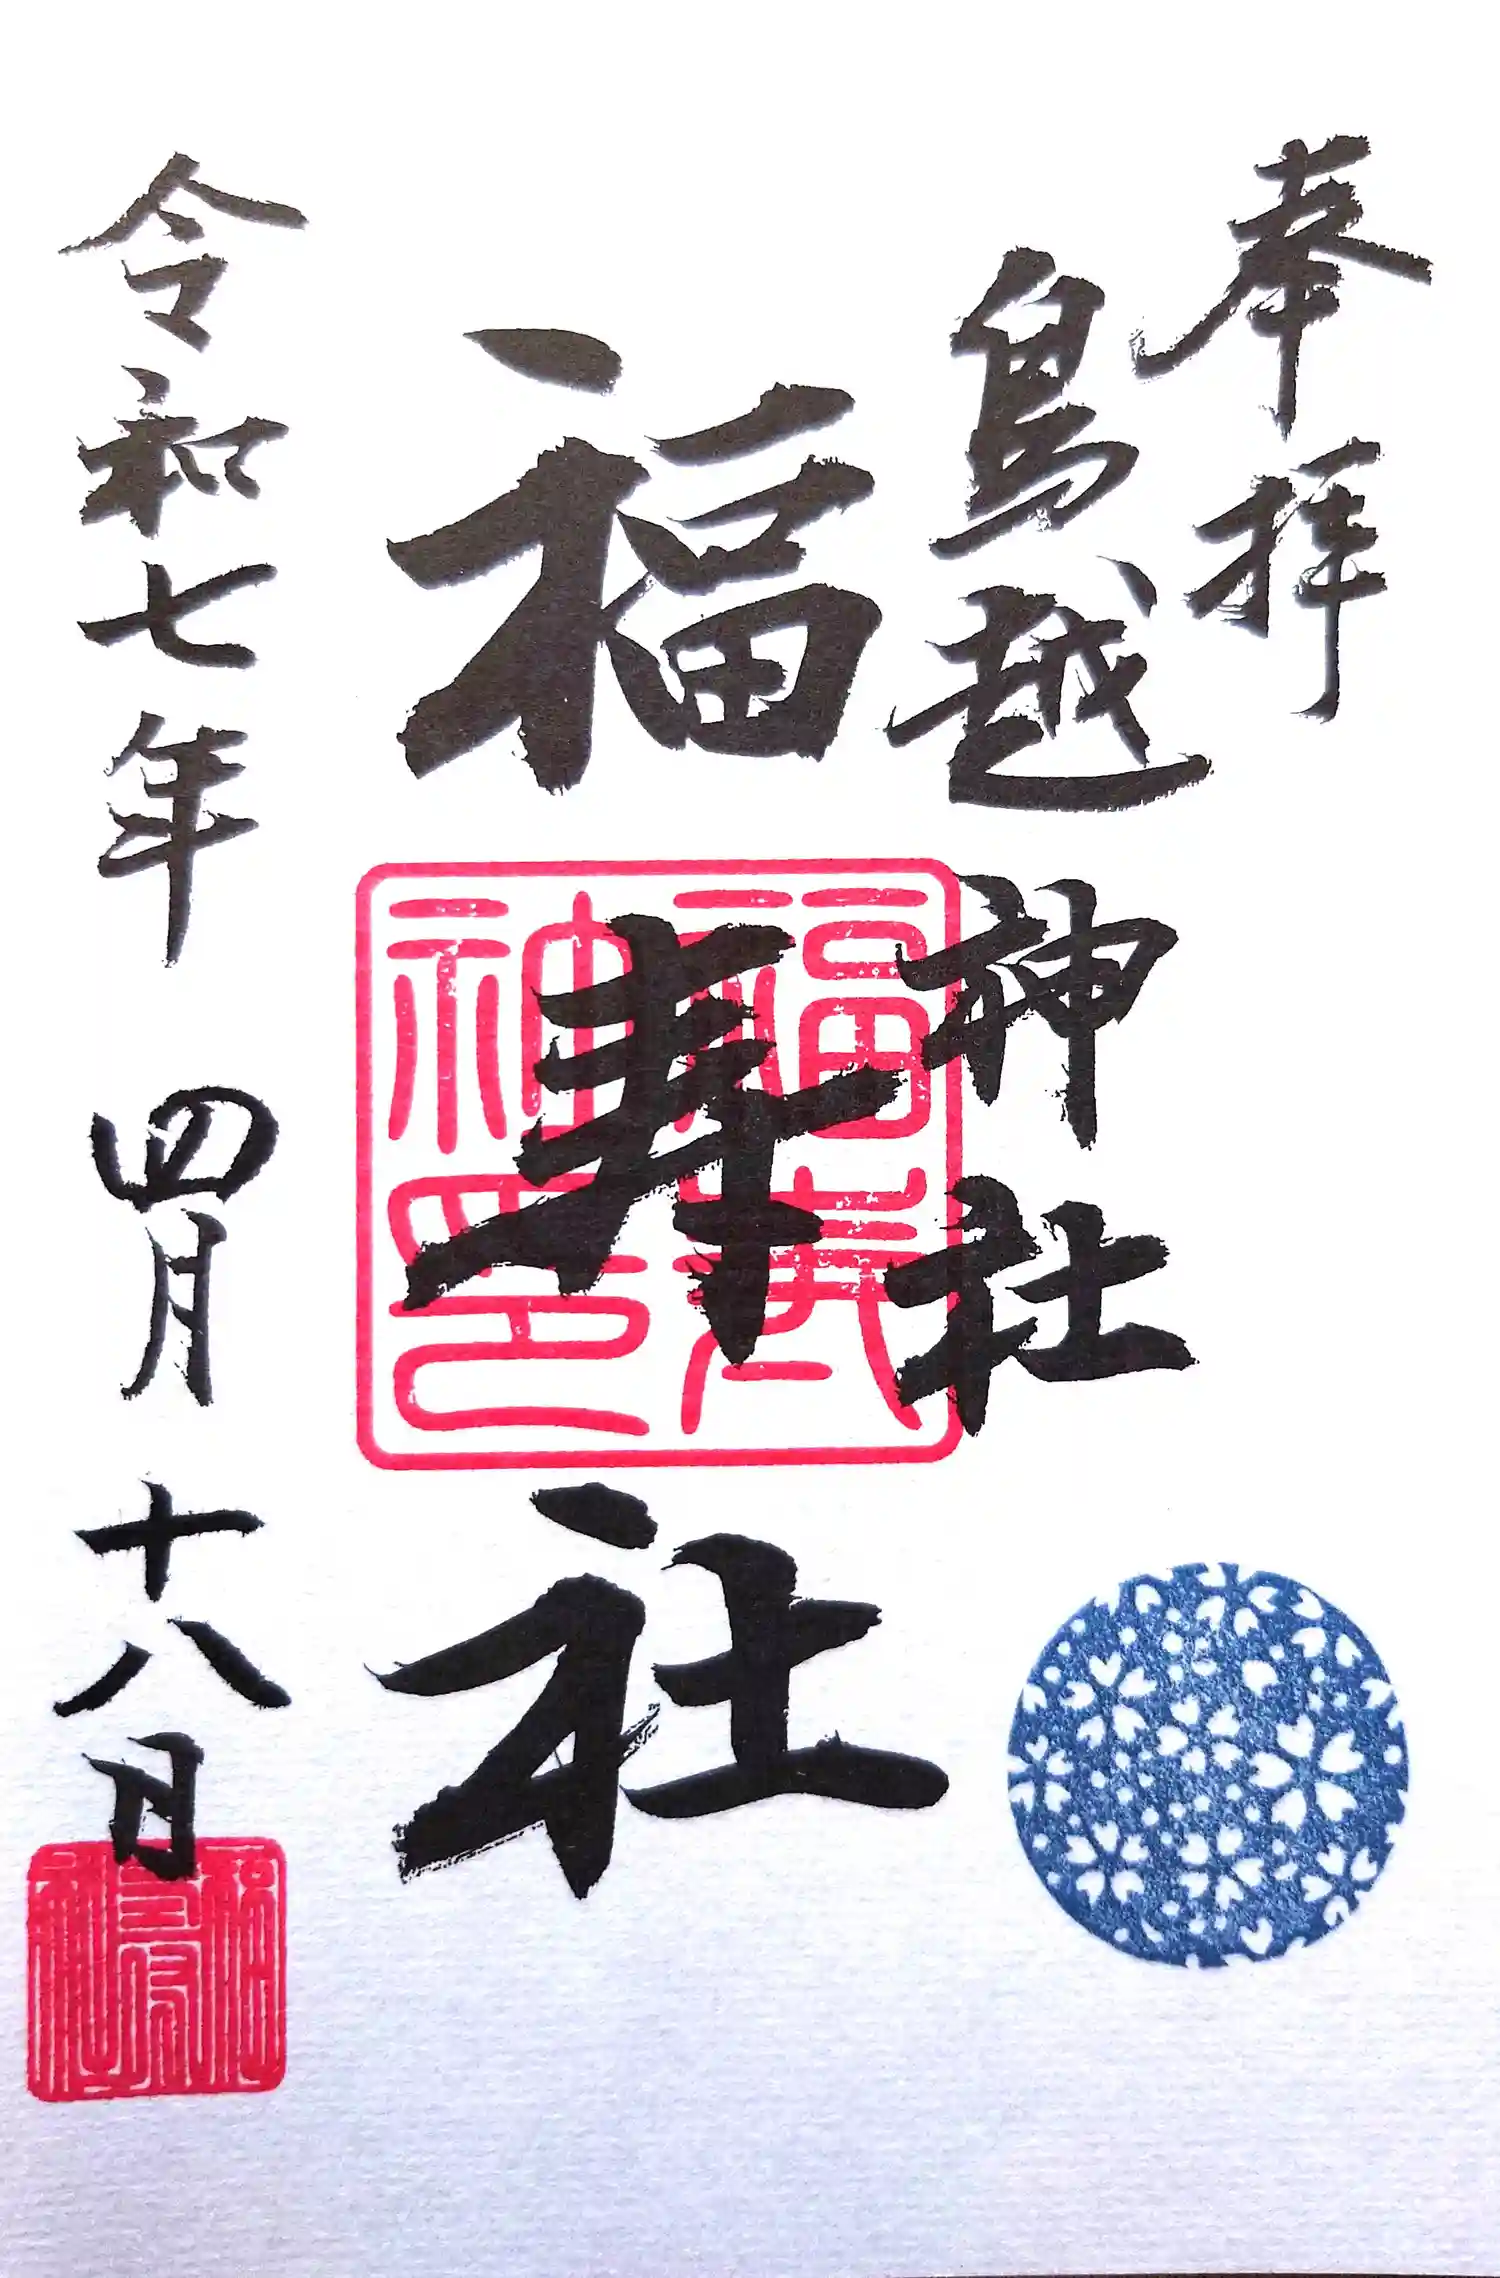 奉拝
鳥越神社
福寿社
令和七年 四月 十八日
福寿神印